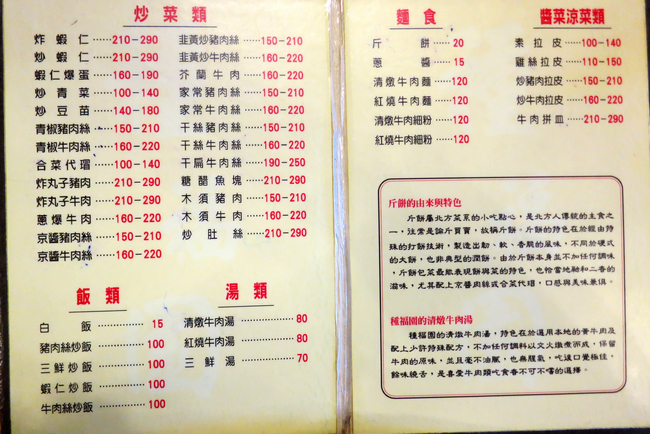 炒菜類
炸蝦仁……210-290
炒蝦仁……210-290
蝦仁爆蛋……160-190
炒青菜……100-140
炒豆苗……140-180
青椒豬肉絲……150-210
青椒牛肉絲……160-220
合菜代瑁……100-140
炸丸子豬肉……210-290
炸丸子牛肉……210-290
蔥爆牛肉……160-220
京醬豬肉絲……150-210
京醬牛肉絲……160-220
韭黃炒豬肉絲……150-210
韭黃炒牛肉絲……160-220
芥蘭牛肉……160-220
家常豬肉絲……150-210
家常牛肉絲……160-220
干絲豬肉絲……150-210
干絲牛肉絲……160-220
干扁牛肉絲……190-250
糖醋魚塊……210-290
木須豬肉……150-210
木須牛肉……160-220
炒肚絲……210-290
飯類
白飯……15
豬肉絲炒飯……100
三鮮炒飯……100
蝦仁炒飯……100
牛肉絲炒飯……100
湯類
清燉牛肉湯……80
紅燒牛肉湯……80
三鮮湯……70
麵食
斤餅……20
蔥醬……15
清燉牛肉麵……120
紅燒牛肉麵……120
清燉牛肉細粉……120
紅燒牛肉細粉……120
醬菜涼菜類
素拉皮……100-140
雞絲拉皮……110-150
炒豬肉拉皮……150-210
炒牛肉拉皮……160-220
牛肉拼皿……210-290
斤餅的由來與特色
斤餅屬北方菜系的小吃點心，是北方人傳統的主食之
一，注常是論斤買賣，故稱斤餅。斤餅的特色在於經由特
殊的打餅技術，製造出韌、軟、香脆的風味，不同於硬式
的大餅，也非典型的潤餅。由於斤餅本身並不加任何調味
，斤餅包菜最能表現餅與菜的特色，也恰當地融和二者的
滋味，尤其配上京醬肉絲或合菜代瑁，口感與美味兼俱。
種福園的清燉牛肉湯
種福園的清燉牛肉湯，特色在於選用本地的黃牛肉及
配上少許特殊配方，不加任何調料以文火燉煮而成，保留
牛肉的原味，並且毫不油膩，也無腥氣，吃讓口覺極佳，
餘味繞舌，是喜愛牛肉類吃食者不可不嚐的選擇。